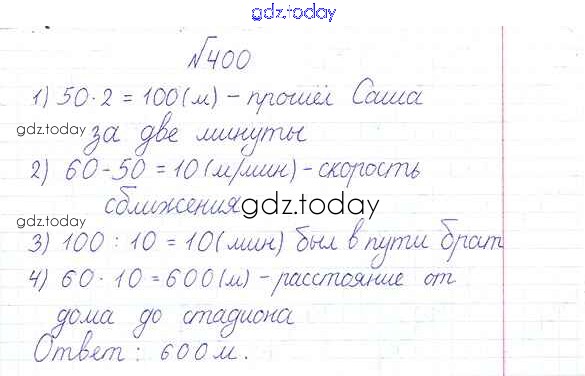 gdz.today
№400
1) 50·2 = 100(м) – прошёл Саша
gdz.today
за две минуты
2) 60-50 = 10(м/мин) – скорость
gdz.today
сближения
gdz.today
3) 100 : 10 = 10(мин) был в пути брат
gdz.today
4) 60·10 = 600(м) – расстояние от
дома до стадиона
Ответ: 600м.